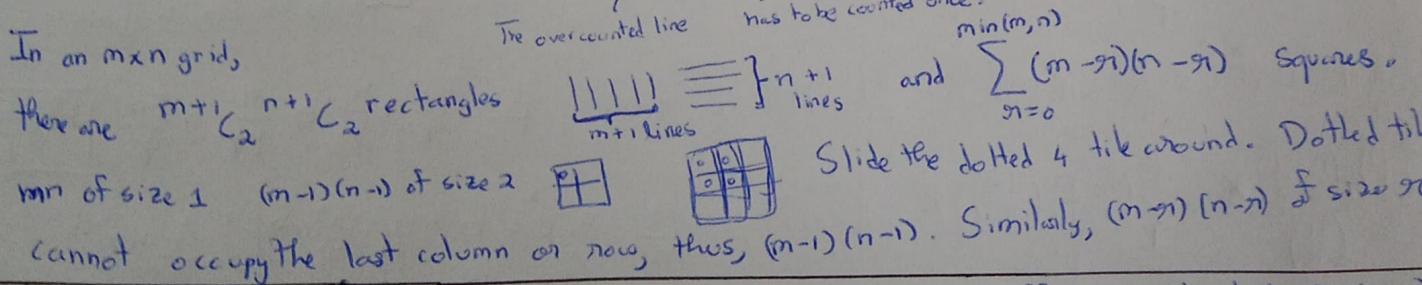 The overcounted line has to be counted once.
In an m×n grid,
there are m+1C2 n+1C2 rectangles m+1 lines } n+1 lines and min(m,n) ∑ r=0 (m-r)(n-r) squares.
mn of size 1 (m-1)(n-1) of size 2 Slide the dotted 4 tile around. Dotted til
cannot occupy the last column or row, thus, (m-1)(n-1). Similarly, (m-r)(n-r) of size r